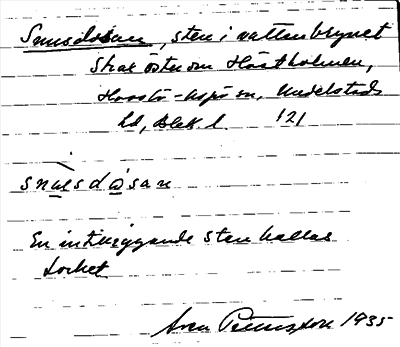 Snusdosan, sten i vattenbrynet
strax öster om Hästholmen,
Hasslö-Aspö sn, Medelstads
hd, Blek. l. 121
snusdosan
En intilliggande sten kallas
Locket
Sven Pettersson 1935